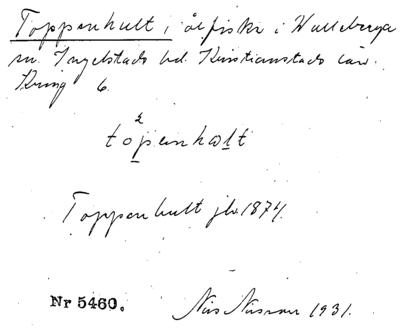 Toppenhult, ålfiske i Walleberga
sn. Ingelstads hd. Kristianstads län.
Kring 6.
topenhalt
Toppenhult jb. 1874.
Nr 5460. Nils Nilsson 1931.